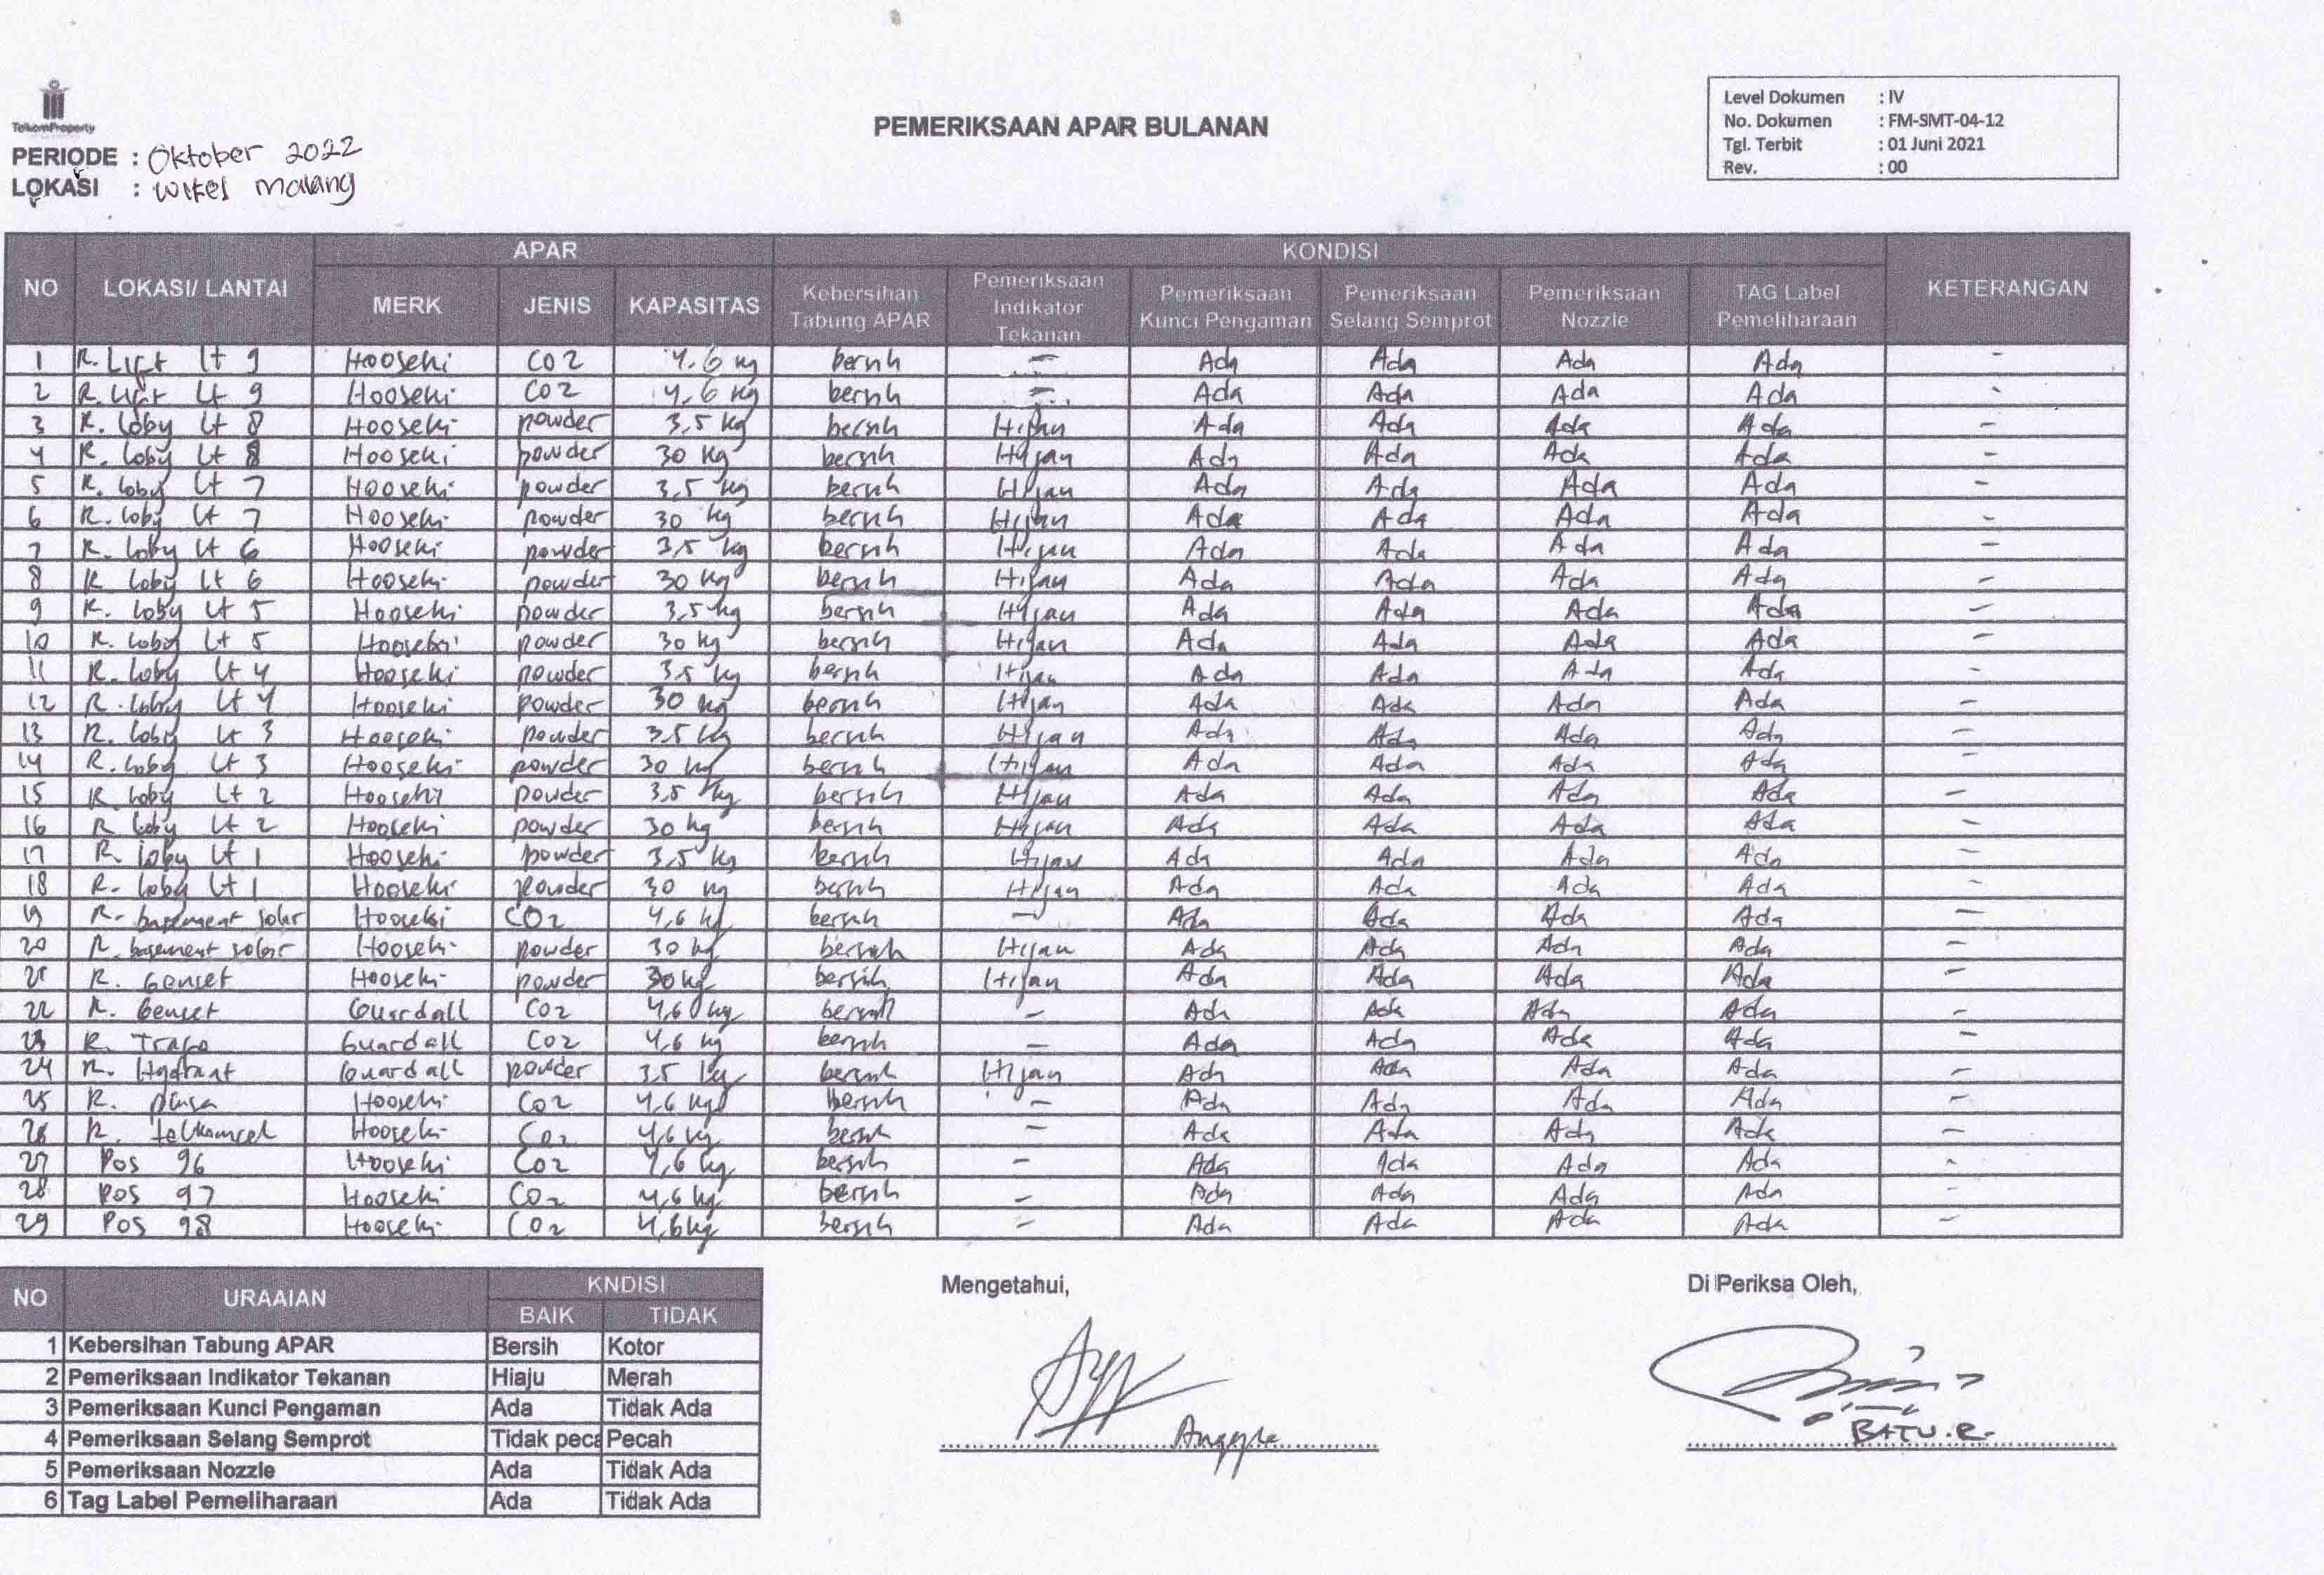 TelkomProperty
PERIODE : Oktober 2022
LOKASI : Witel Malang
PEMERIKSAAN APAR BULANAN
Level Dokumen : IV
No. Dokumen : FM-SMT-04-12
Tgl. Terbit : 01 Juni 2021
Rev. : 00
NO LOKASI/ LANTAI APAR KONDISI KETERANGAN
MERK JENIS KAPASITAS Kebersihan Tabung APAR Pemeriksaan Indikator Tekanan Pemeriksaan Kunci Pengaman Pemeriksaan Selang Semprot Pemeriksaan Nozzle TAG Label Pemeliharaan
1 R. Lift Lt 9 Hooseki CO2 4.6 kg bersih - Ada Ada Ada Ada -
2 R. Lift Lt 9 Hooseki CO2 4,6 kg bersih - Ada Ada Ada Ada -
3 R. Loby Lt 8 Hooseki powder 3,5 kg bersih Hijau Ada Ada Ada Ada -
4 R. Loby Lt 8 Hooseki powder 30 kg bersih Hijau Ada Ada Ada Ada -
5 R. Loby Lt 7 Hooseki powder 3,5 kg bersih Hijau Ada Ada Ada Ada -
6 R. Loby Lt 7 Hooseki powder 30 kg bersih Hijau Ada Ada Ada Ada -
7 R. Loby Lt 6 Hooseki powder 3,5 kg bersih Hijau Ada Ada Ada Ada -
8 R Loby Lt 6 Hooseki powder 30 kg bersih Hijau Ada Ada Ada Ada -
9 R. Loby Lt 5 Hooseki powder 3,5 kg bersih Hijau Ada Ada Ada Ada -
10 R. Loby Lt 5 Hooseki powder 30 kg bersih Hijau Ada Ada Ada Ada -
11 R. Loby Lt 4 Hooseki powder 3,5 kg bersih Hijau Ada Ada Ada Ada -
12 R. Loby Lt 4 Hooseki powder 30 kg bersih Hijau Ada Ada Ada Ada -
13 R. Loby Lt 3 Hooseki powder 3,5 kg bersih Hijau Ada Ada Ada Ada -
14 R. Loby Lt 3 Hooseki powder 30 kg bersih Hijau Ada Ada Ada Ada -
15 R Loby Lt 2 Hooseki powder 3,5 kg bersih Hijau Ada Ada Ada Ada -
16 R Loby Lt 2 Hooseki powder 30 kg bersih Hijau Ada Ada Ada Ada -
17 R. Loby Lt 1 Hooseki powder 3,5 kg bersih Hijau Ada Ada Ada Ada -
18 R. Loby Lt 1 Hooseki powder 30 kg bersih Hijau Ada Ada Ada Ada -
19 R. basement solar Hooseki CO2 4,6 kg bersih - Ada Ada Ada Ada -
20 R. basement solar Hooseki powder 30 kg bersih Hijau Ada Ada Ada Ada -
21 R. Genset Hooseki powder 30 kg bersih Hijau Ada Ada Ada Ada -
22 R. Genset Guardall CO2 4,6 kg bersih - Ada Ada Ada Ada -
23 R. Trafo Guardall CO2 4,6 kg bersih - Ada Ada Ada Ada -
24 R. Hydrant Guardall powder 3,5 kg bersih Hijau Ada Ada Ada Ada -
25 R. Hooseki CO2 4,6 kg bersih - Ada Ada Ada Ada -
26 R. telkomsel Hooseki CO2 4,6 kg bersih - Ada Ada Ada Ada -
27 Pos 96 Hooseki CO2 4,6 kg bersih - Ada Ada Ada Ada -
28 Pos 97 Hooseki CO2 4,6 kg bersih - Ada Ada Ada Ada -
29 Pos 98 Hooseki CO2 4,6 kg bersih - Ada Ada Ada Ada -
NO URAAIAN KNDISI
BAIK TIDAK
1 Kebersihan Tabung APAR Bersih Kotor
2 Pemeriksaan Indikator Tekanan Hiaju Merah
3 Pemeriksaan Kunci Pengaman Ada Tidak Ada
4 Pemeriksaan Selang Semprot Tidak peca Pecah
5 Pemeriksaan Nozzle Ada Tidak Ada
6 Tag Label Pemeliharaan Ada Tidak Ada
Mengetahui,
Di Periksa Oleh,
BATU.R.